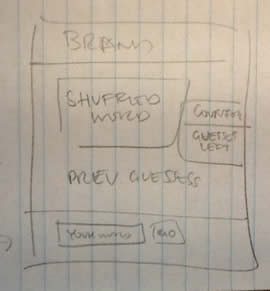 BRAND
SHUFFLED
WORD
COUNTER
GUESSES
LEFT
PREV GUESSESS
YOUR WORD
GO